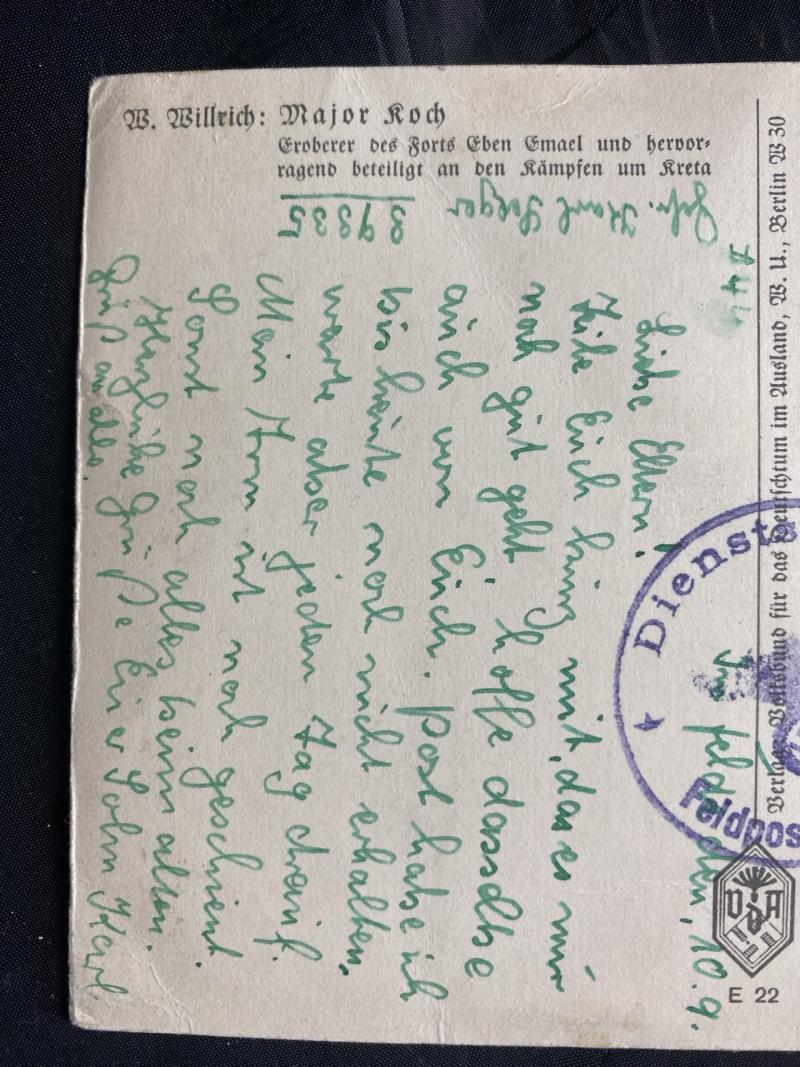 W. Willrich: Major Koch
Eroberer des Forts Eben Emael und hervor=
ragend beteiligt an den Kämpfen um Kreta
Gefr. Karl
Im Felde, den, 10.9.
44
Liebe Eltern!
Teile Euch kurz mit, das es mir
noch gut geht hoffe dasselbe
auch von Euch. Post habe ich
bis heute noch nicht erhalten,
warte aber jeden Tag drauf.
Mein Arm ist noch geschient.
Sonst noch alles beim alten.
Herzliche Grüße Euer Sohn Karl.
Gruß an alle.
Verlag: Volksbund für das Deutschtum im Ausland, W. U., Berlin W 30
Dienst
Feldpos
VDA
E 22